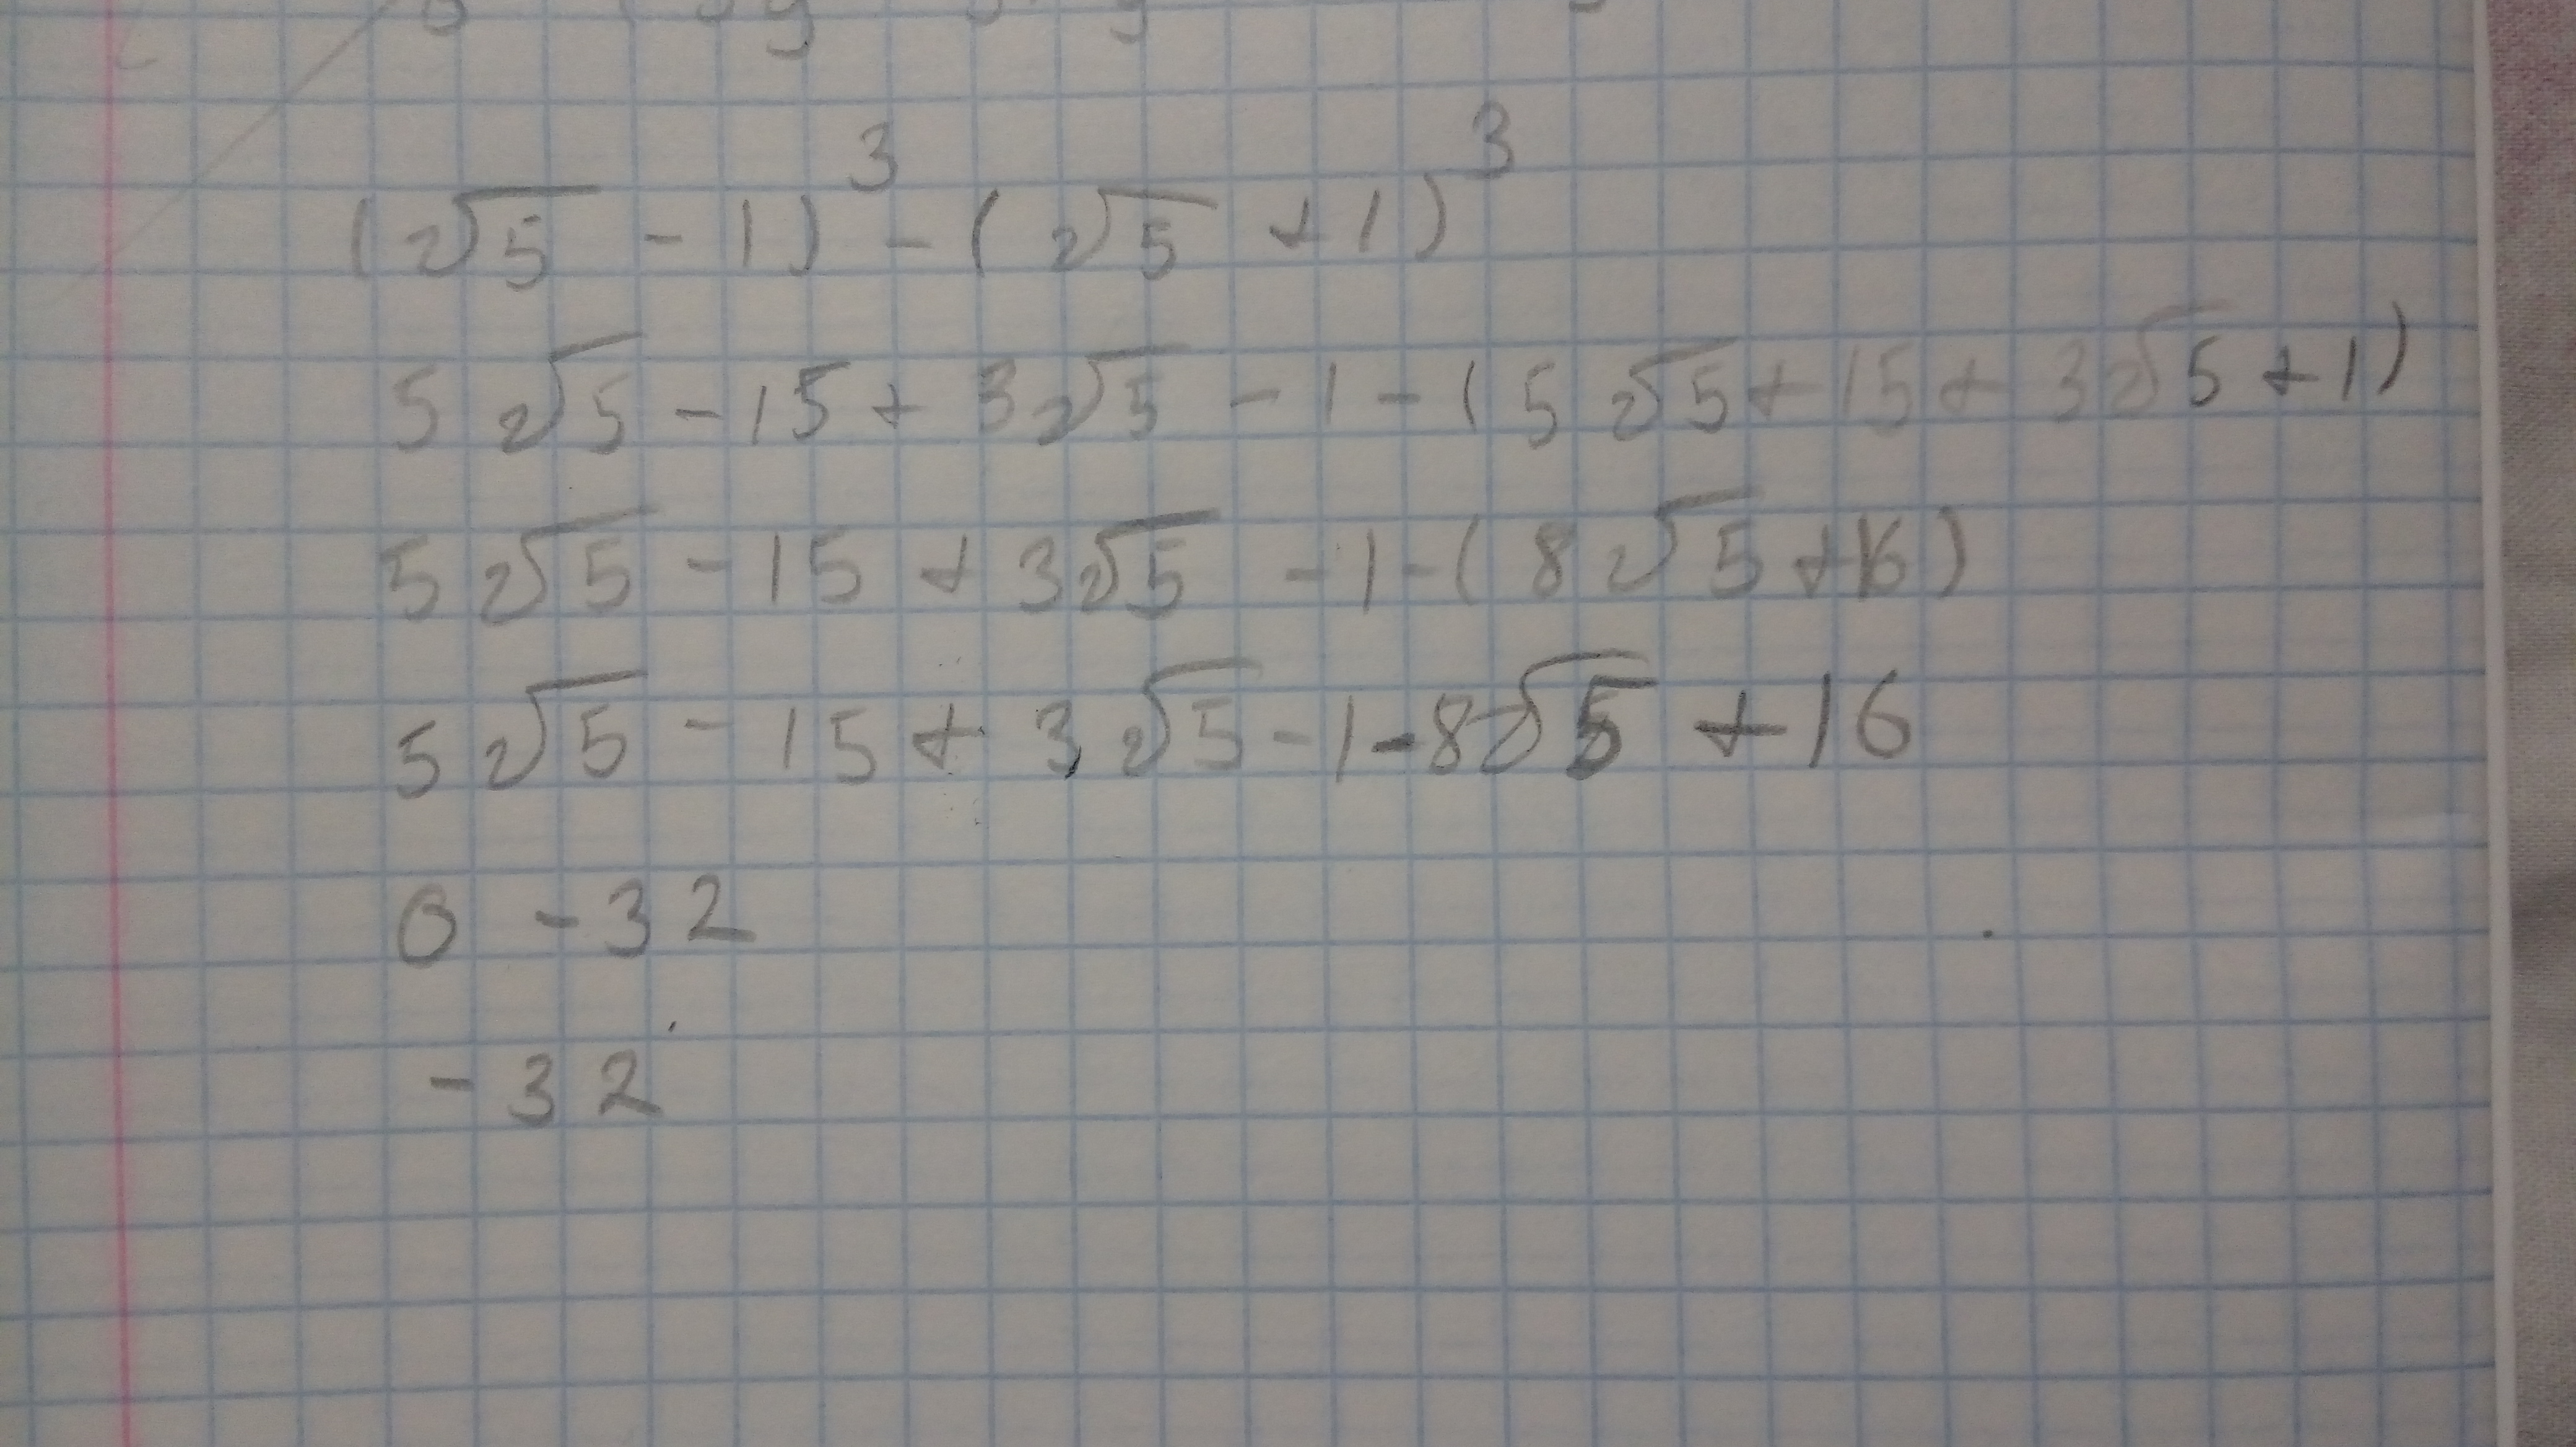 (²√5 - 1)³ - (²√5 + 1)³
5 ²√5 - 15 + 3 ²√5 - 1 - (5 ²√5 + 15 + 3 ²√5 + 1)
5 ²√5 - 15 + 3 ²√5 - 1 - (8 ²√5 + 16)
5 ²√5 - 15 + 3 ²√5 - 1 - 8 ²√5 + 16
0 - 32
- 32